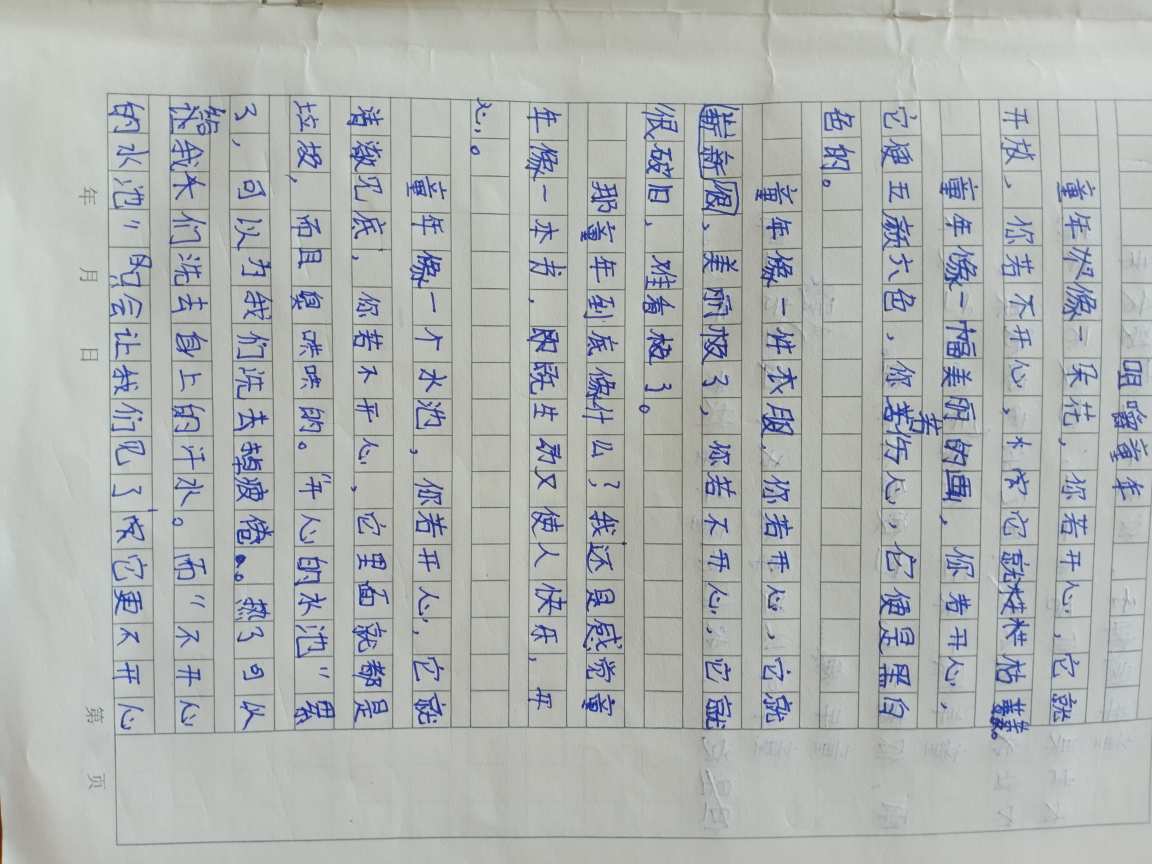 咀嚼童年
童年像一朵花，你若开心，它就
开放，你若不开心，它就枯萎。
童年像一幅美丽的画，你若开心，
它便五颜六色，你若伤心，它便是黑白
色的。
童年像一件衣服，你若开心，它就
崭新，美丽极了，你若不开心，它就
很破旧，难看极了。
那童年到底像什么？我还是感觉童
年像一本书，即既生动又使人快乐，开
心。
童年像一个水池，你若开心，它就
清澈见底，你若不开心，它里面就都是
垃圾，而且臭哄哄的。“开心的水池”累
了，可以为我们洗去疲倦。热了可以
给我们洗去身上的汗水。而“不开心
的水池”只会让我们见了它更不开心
年 月 日
第 页